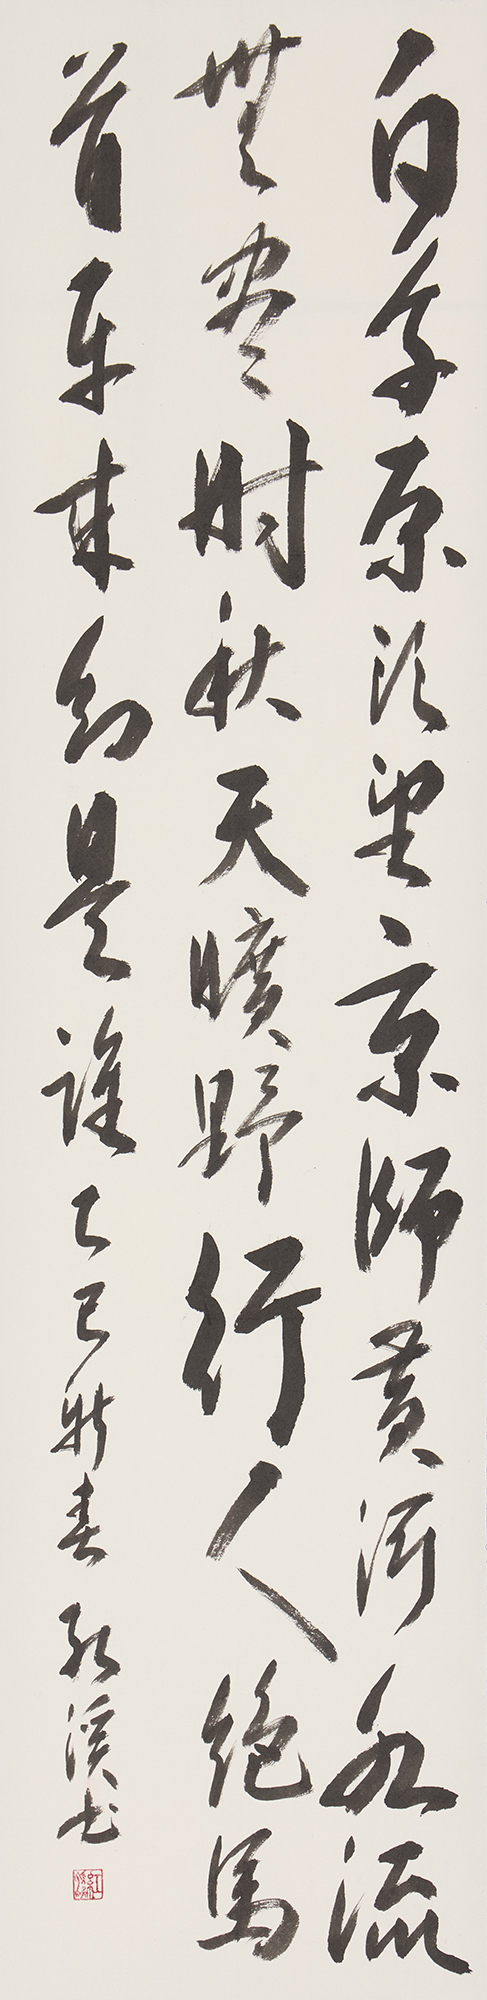 白草原頭望京師黃河水流
無盡時秋天曠野行人絕馬
首東來知是誰乙巳新春溪書